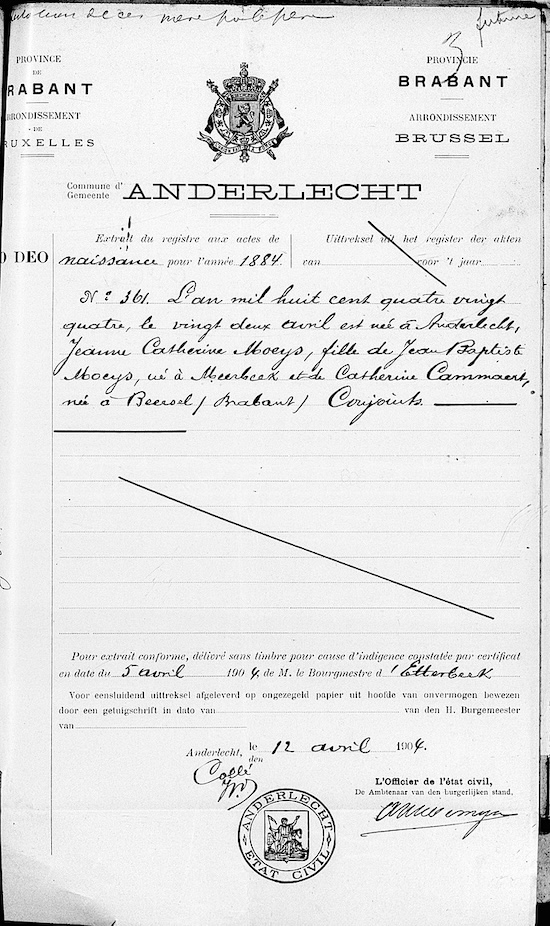 de ces
future
3
PROVINCE
DE
RABANT
ARRONDISSEMENT
- DE
RUXELLES
PROVINCIE
BRABANT
ARRONDISSEMENT
BRUSSEL
Commune d'
Gemeente
ANDERLECHT
Extrait du registre aux actes de
naissance pour l'année 1884.
Uittreksel uit het register der akten
van voor 't jaar
O DEO
N° 361. L'an mil huit cent quatre vingt
quatre, le vingt deux avril est née à Anderlecht,
Jeanne Catherine Moeys, fille de Jean Baptiste
Moeys, né à Meerbeek et de Catherine Cammaert,
née à Beersel / Brabant / Conjoints.
Pour extrait conforme, délivré sans timbre pour cause d'indigence constatée par certificat
en date du 5 avril 1904. de M. le Bourgmestre d'Etterbeek
Voor eensluidend uittreksel afgeleverd op ongezegeld papier uit hoofde van onvermogen bewezen
door een getuigschrift in dato van van den H. Burgemeester
van
Anderlecht, le 12 avril 1904.
den
Collé
L'Officier de l'état civil,
De Ambtenaar van den burgerlijken stand,
ANDERLECHT
ETAT CIVIL